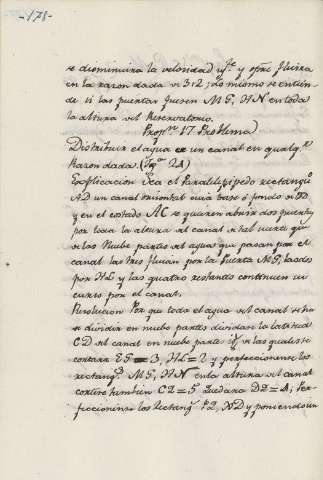 -178-
se disminuira la velocidad y se
en la razon dada de 3 a 2; lo mismo se entien-
de si las puertas fuesen MG, HN en toda
la altura del Reservatorio.
Propn. 17 Problema)
Distribuir el agua de un canal en qualqe
Razon dada. (Figa 24)
Explicacion Sea el Paralelipipedo rectangu
AD un canal orisontal cuia base o fondo es BD
y en el costado AC se quieren abrir dos puertas
por toda la altura del canal de tal suerte que
de las Nuebe partes del agua que pasan por el
canal las tres fluian por la Puerta MG, las dos
por HL y las quatro restantes continuen su
curso por el canal.
Resolucion Por que toda el agua del canal se ha
de dividir en nuebe partes dividase la latitud
CD del canal en nuebe partes de las quales se
cortara EG=3, HL=2 y perfeccionense los
rectangs MG, HN en la altura del canal
cortese tambien CZ=5 quedara DZ=4; Per-
ficcionense los Rectangs PZ, ND y poniendo un